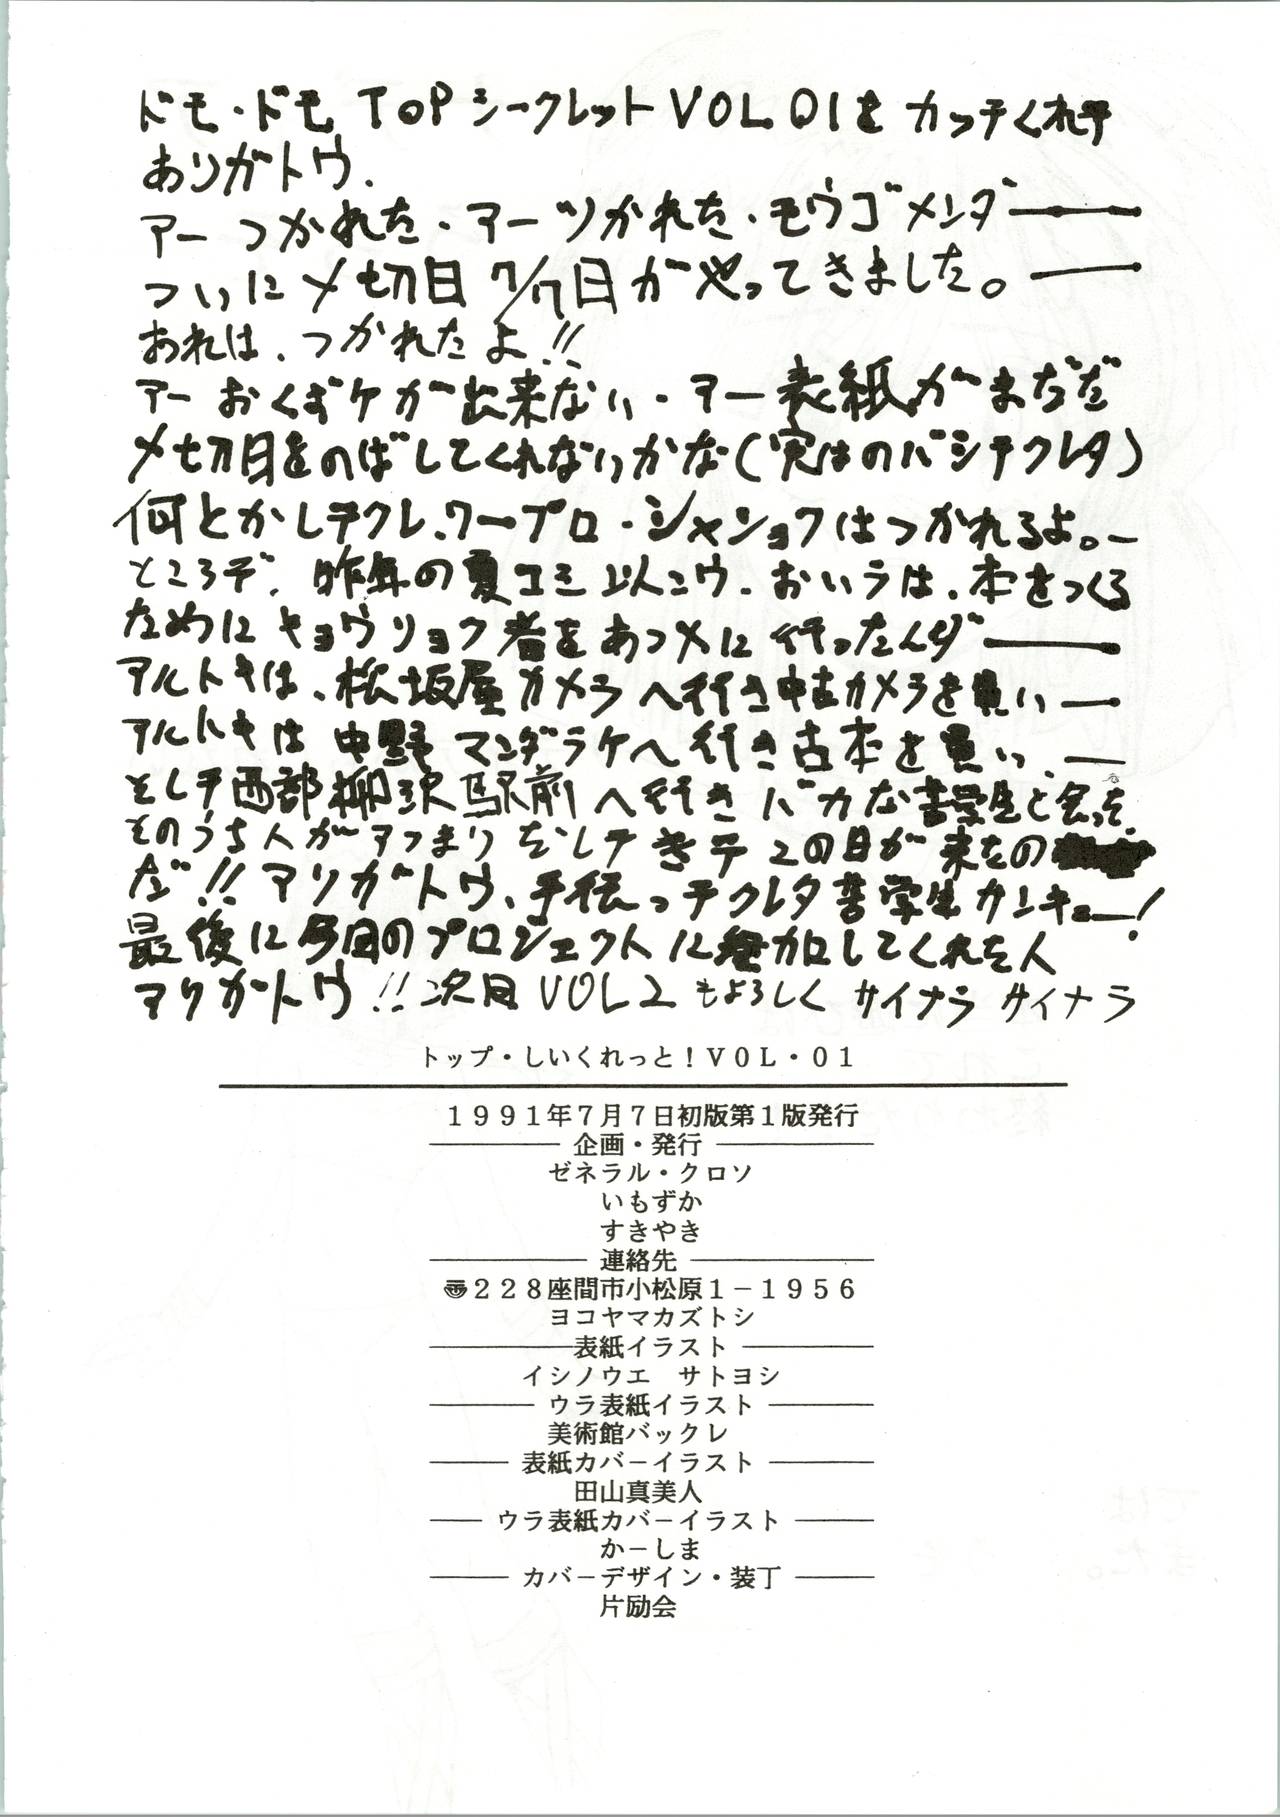 ドモ・ドモ TOPシークレットVOL01を カッテくれテ
ありガトウ.
アー つかれた・アーツかれた・モウゴメンダ――
ついに〆切日 7/7日がやってきました。――
おれは、つかれたよ!!
アー おくずケが出来ない・アー表紙がまだだ
〆切日をのばしてくれないかな(実はのバシテクレタ)
何とかしテクレ、ワープロ・シャショクはつかれるよ。―
ところデ、昨年の夏コミ以ニウ・おいラは、本をつくる
ために キョウリョク者をあつメに行ったんダ――
アルトキは、松坂屋カメラへ行き中古カメラを買い―
アルトキは 中野 マンダラケへ行き古本を買い、―
そしテ西部柳沢駅前へ行き バカな書学生と会った
そのうち人がアつまり そしテきテこの日が来たの
だ!! アリガトウ、手伝ってクレタ苦学生サンキュー!
最後に今回のプロジェクトに参加してくれた人
アリガトウ!! 次回VOL2 もよろしく サイナラ サイナラ
トップ・しいくれっと!VOL・01
1991年7月7日初版第1版発行
企画・発行
ゼネラル・クロソ
いもずか
すきやき
連絡先
〠228座間市小松原1-1956
ヨコヤマカズトシ
表紙イラスト
イシノウエ サトヨシ
ウラ表紙イラスト
美術館バックレ
表紙カバーイラスト
田山真美人
ウラ表紙カバーイラスト
かーしま
カバーデザイン・装丁
片励会